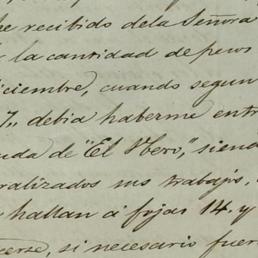 he recibido dela Señora
la cantidad de pesos
diciembre, cuando segun
7, debia haberme entr
uda de "El Nero," siend
ralizados sus trabajos,
hallan á fojas 14. y
cerse, si necesario fuer